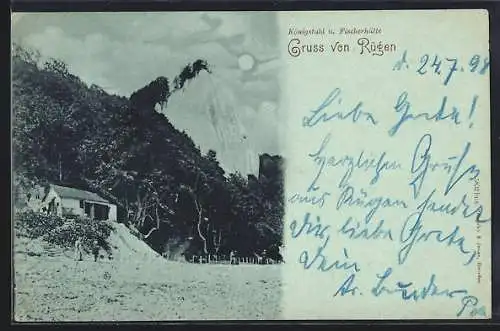 Königstuhl u. Fischerhütte
Gruss von Rügen
d. 24.7.98
Liebe Grete!
Herzlichen Gruß
aus Rügen sendet
Dir, liebe Grete,
Dein